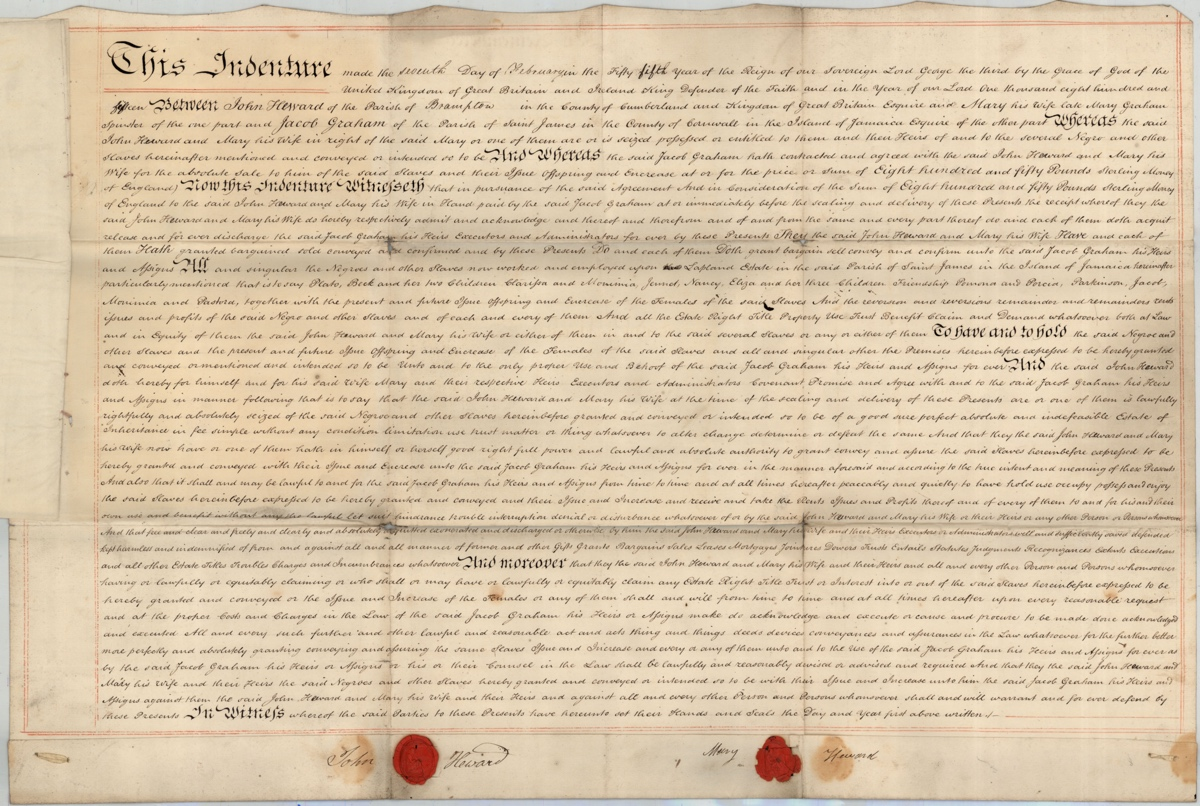 This Indenture made the seventh Day of February in the Fifty fifth Year of the Reign of our Sovereign Lord George the third by the Grace of God of the
United Kingdom of Great Britain and Ireland King Defender of the Faith and in the Year of our Lord One thousand eight hundred and
fifteen Between John Heward of the Parish of Brampton in the County of Cumberland and Kingdom of Great Britain Esquire and Mary his Wife late Mary Graham
Spinster of the one part and Jacob Graham of the Parish of Saint James in the County of Cornwall in the Island of Jamaica Esquire of the other part Whereas the said
John Heward and Mary his Wife in right of the said Mary or one of them are or is seized possessed or entitled to them and their Heirs of and to the several Negro and other
Slaves hereinafter mentioned and conveyed or intended so to be And Whereas the said Jacob Graham hath contracted and agreed with the said John Heward and Mary his
Wife for the absolute Sale to him of the said Slaves and their Issue Offspring and Encrease at or for the price or Sum of Eight hundred and fifty Pounds Sterling Money
of England Now this Indenture Witnesseth that in pursuance of the said Agreement And in Consideration of the Sum of Eight hundred and fifty Pounds Sterling Money
of England to the said John Heward and Mary his Wife in Hand paid by the said Jacob Graham at or immediately before the sealing and delivery of these Presents the receipt whereof they the
said John Heward and Mary his Wife do hereby respectively admit and acknowledge and thereof and therefrom and of and from the same and every part thereof do and each of them doth acquit
release and for ever discharge the said Jacob Graham his Heirs Executors and Administrators for ever by these Presents They the said John Heward and Mary his Wife Have and each of
them Hath granted bargained sold conveyed and confirmed and by these Presents Do and each of them Doth grant bargain sell convey and confirm unto the said Jacob Graham his Heirs
and Assigns All and singular the Negroes and other Slaves now worked and employed upon Lapland Estate in the said Parish of Saint James in the Island of Jamaica hereinafter
particularly mentioned that is to say Plato, Beck and her two Children Clarissa and Monimia, Jennet, Nancy, Eliza and her three Children Friendship Pomona and Porcia, Parkinson, Jacob,
Monimia and Pastora, together with the present and future Issue Offspring and Encrease of the Females of the said Slaves And the reversion and reversions remainder and remainders rents
issues and profits of the said Negro and other Slaves and of each and every of them And all the Estate Right Title Property Use Trust Benefit Claim and Demand whatsoever both at Law
and in Equity of them the said John Heward and Mary his Wife or either of them in and to the said several Slaves or any or either of them To have and to hold the said Negroe and
other Slaves and the present and future Issue Offspring and Encrease of the Females of the said Slaves and all and singular other the Premises hereinbefore expressed to be hereby granted
and conveyed or mentioned and intended so to be Unto and to the only proper Use and Behoof of the said Jacob Graham his Heirs and Assigns for ever And the said John Heward
doth hereby for himself and for his said Wife Mary and their respective Heirs Executors and Administrators Covenant Promise and Agree with and to the said Jacob Graham his Heirs
and Assigns in manner following that is to say that the said John Heward and Mary his Wife at the time of the sealing and delivery of these Presents are or one of them is lawfully
rightfully and absolutely seized of the said Negroe and other Slaves hereinbefore granted and conveyed or intended so to be of a good sure perfect absolute and indefeasible Estate of
Inheritance in fee simple without any condition limitation use trust matter or thing whatsoever to alter change determine or defeat the same And that they the said John Heward and Mary
his Wife now have or one of them hath in himself or herself good right full power and lawful and absolute authority to grant convey and assure the said Slaves hereinbefore expressed to be
hereby granted and conveyed with their Issue and Encrease unto the said Jacob Graham his Heirs and Assigns for ever in the manner aforesaid and according to the true intent and meaning of these Presents
And also that it shall and may be lawful to and for the said Jacob Graham his Heirs and Assigns from time to time and at all times hereafter peaceably and quietly to have hold use occupy possess and enjoy
the said Slaves hereinbefore expressed to be hereby granted and conveyed and their Issue and Increase and receive and take the Rents Issues and Profits thereof and of every of them to and for his and their
own use and benefit without any the lawful let suit hindrance trouble interruption denial or disturbance whatsoever of or by the said John Heward and Mary his Wife or their Heirs or any other Person or Persons whomsoever
And that free and clear and freely and clearly and absolutely acquitted exonerated and discharged or otherwise by them the said John Heward and Mary his Wife and their Heirs Executors or Administrators well and sufficiently saved defended
kept harmless and indemnified of from and against all and all manner of former and other Gifts Grants Bargains Sales Leases Mortgages Jointures Powers Trusts Entails Statutes Judgments Recognizances Extents Executions
and all other Estate Titles Troubles Charges and Incumbrances whatsoever And moreover that they the said John Heward and Mary his Wife and their Heirs and all and every other Person and Persons whomsoever
having or lawfully or equitably claiming or who shall or may have or lawfully or equitably claim any Estate Right Title Trust or Interest into or out of the said Slaves hereinbefore expressed to be
hereby granted and conveyed or the Issue and Increase of the Females or any of them shall and will from time to time and at all times hereafter upon every reasonable request
and at the proper Costs and Charges in the Law of the said Jacob Graham his Heirs or Assigns make do acknowledge and execute or cause and procure to be made done acknowledged
and executed All and every such further and other lawful and reasonable act and acts thing and things deeds devices conveyances and assurances in the Law whatsoever for the further better
more perfectly and absolutely granting conveying and assuring the same Slaves Issue and Increase and every or any of them unto and to the Use of the said Jacob Graham his Heirs and Assigns for ever as
by the said Jacob Graham his Heirs or Assigns or his or their Counsel in the Law shall be lawfully and reasonably devised or advised and required And that they the said John Heward and
Mary his Wife and their Heirs the said Negroes and other Slaves hereby granted and conveyed or intended so to be with their Issue and Increase unto him the said Jacob Graham his Heirs and
Assigns against them the said John Heward and Mary his Wife and their Heirs and against all and every other Person and Persons whomsoever shall and will warrant and for ever defend by
these Presents In Witness whereof the said Parties to these Presents have hereunto set their Hands and Seals the Day and Year first above written
John Heward Mary Heward